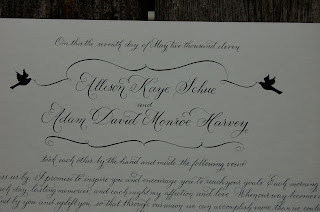 On this the seventh day of May two thousand eleven
Allison Kaye Schue
and
Adam David Monroe Harvey,
took each other by the hand and made the following vows
us by. A promise to inspire you and encourage you to reach your goals. Each morning
day, lasting memories, and each night my affection and love.
and by you and uplift you, so that through our union we can accomplish more than